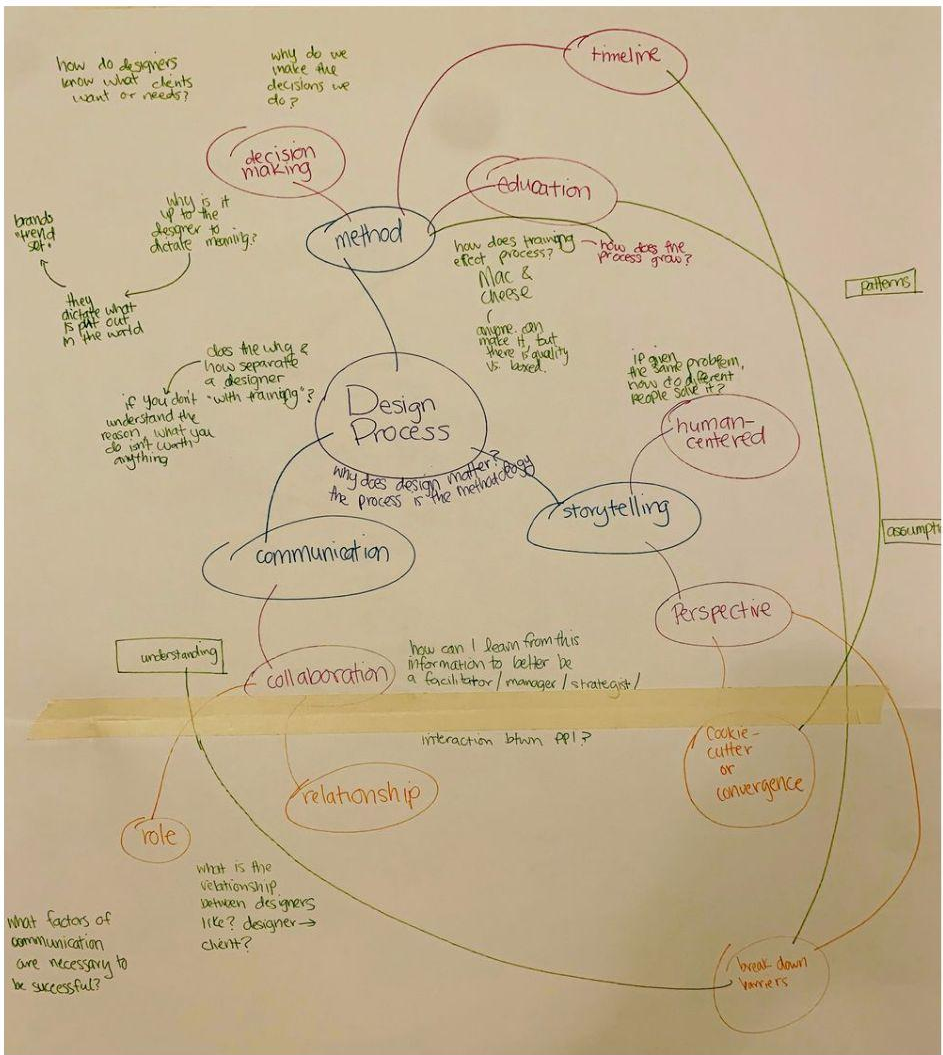 how do designers
know what clients
want or needs?
why do we
make the
decisions we
do?
timeline
decision
making
education
method
brands
"trend
set"
why is it
up to the
designer to
dictate meaning?
they
dictate what
is put out
in the world
how does training
effect process?
how does the
process grow?
Mac &
cheese
anyone can
make it, but
there is quality
vs. boxed.
patterns
does the why &
how separate
a designer
"with training"?
if you don't
understand the
reason, what you
do isn't worth
anything
Design
Process
why does design matter?
the process is the methodology
if given
the same problem,
how do different
people solve it?
human-
centered
storytelling
assumpti
communication
Perspective
understanding
collaboration
how can I learn from this
information to better be
a facilitator/manager/strategist/
interaction btwn ppl?
cookie-
cutter
or
convergence
relationship
role
what is the
relationship
between designers
like? designer→
client?
what factors of
communication
are necessary to
be successful?
break down
barriers